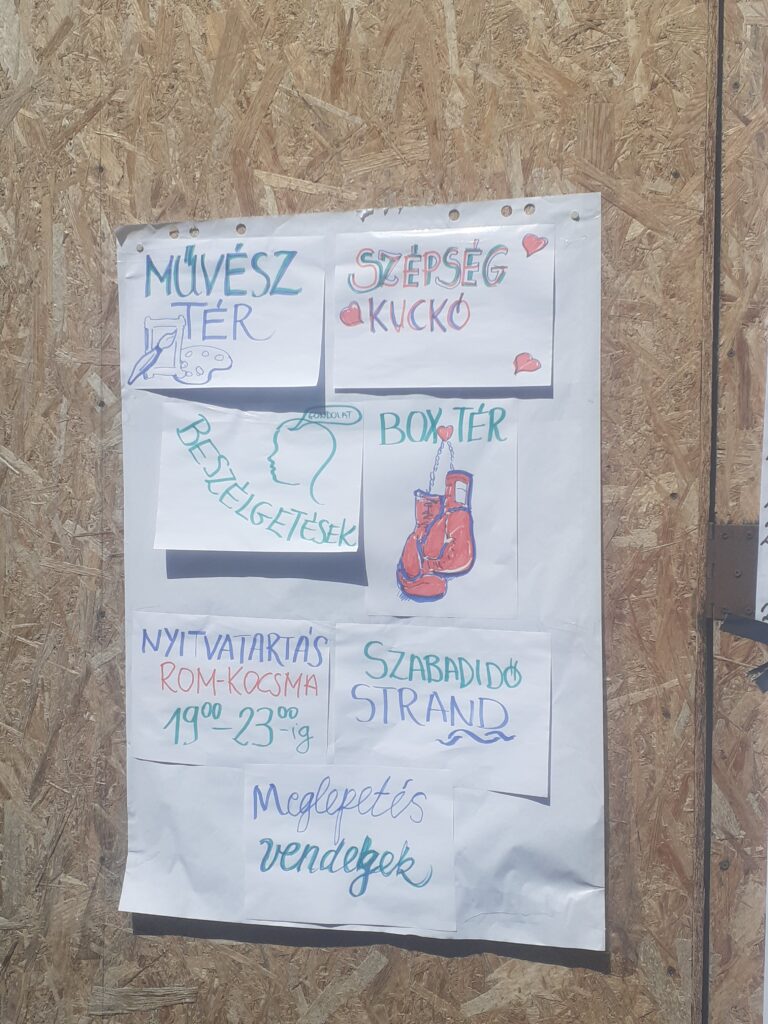 MŰVÉSZ
TÉR
SZÉPSÉG
KUCKÓ
GONDOLAT
BESZÉLGETÉSEK
BOX TÉR
NYITVATARTÁS
ROM-KOCSMA
19⁰⁰-23⁰⁰-ig
SZABADIDŐ
STRAND
Meglepetés
vendégek